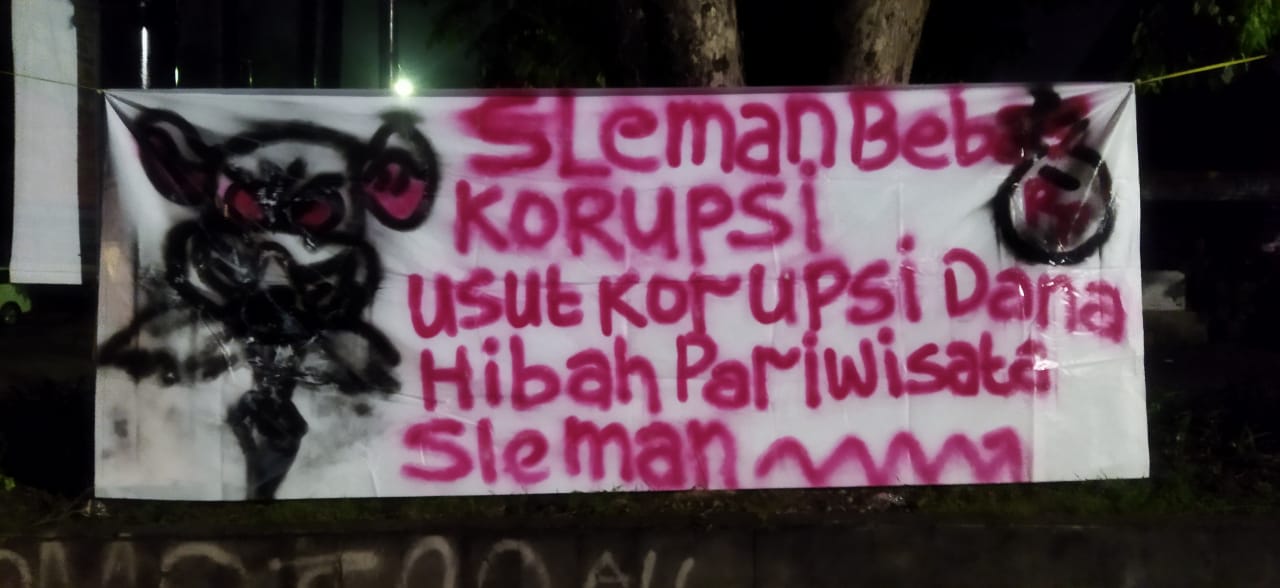 SLeman Bebas
KORUPSI
Rp
usut Korupsi Dana
Hibah Pariwisata
Sleman